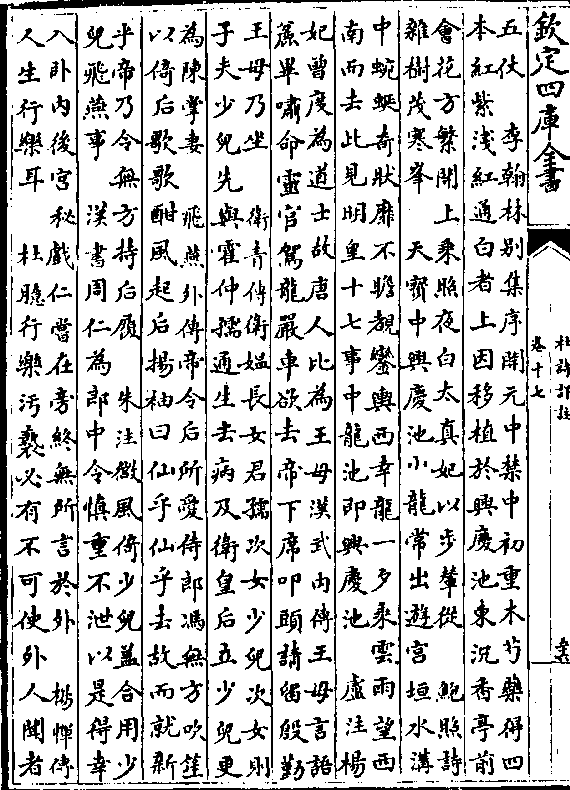 欽定四庫全書
杜詩詳註
卷十七
五仗　李翰林别集序開元中禁中初重木芍藥得四
本紅紫浅紅通白者上因移植於興慶池東沉香亭前
會花方繁開上乘照夜白太真妃以步輦從　鮑照詩
雜樹茂寒峯　天寳中興慶池小龍常出遊宫垣水溝
中蜿蜒奇狀靡不瞻覩鑾輿西幸龍一夕乘雲雨望西
南而去此見明皇十七事中龍池即興慶池　盧注楊
妃曾度為道士故唐人比為王母漢武内傳王母言語
蔗畢嘯命靈官駕龍嚴車欲去帝下席叩頭請留殷勤
王母乃坐　衛青傳衛媼長女君孺次女少兒次女則
子夫少兒先與霍仲孺通生去病及衛皇后立少兒更
為陳掌妻　飛燕外傳帝令后所愛侍郎馮無方吹笙
以倚后歌歌酣風起后揚袖曰仙乎仙乎去故而就新
乎帝乃令無方持后履　朱注微風倚少兒蓋合用少
兒飛燕事　漢書周仁為郎中令慎重不泄以是得幸
入卧内後宫秘戲仁嘗在旁終無所言於外　楊惲傳
人生行樂耳　杜臆行樂汚褻必有不可使外人聞者